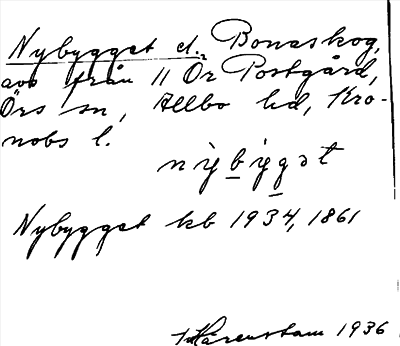 Nybygget d. Bonaskog,
avs från 11 Ör Postgård,
Örs sn, Allbo hd, Kro-
nobs l.
nẙbẙgət
Nybygget kb 1934, 1861
Härenstam 1936